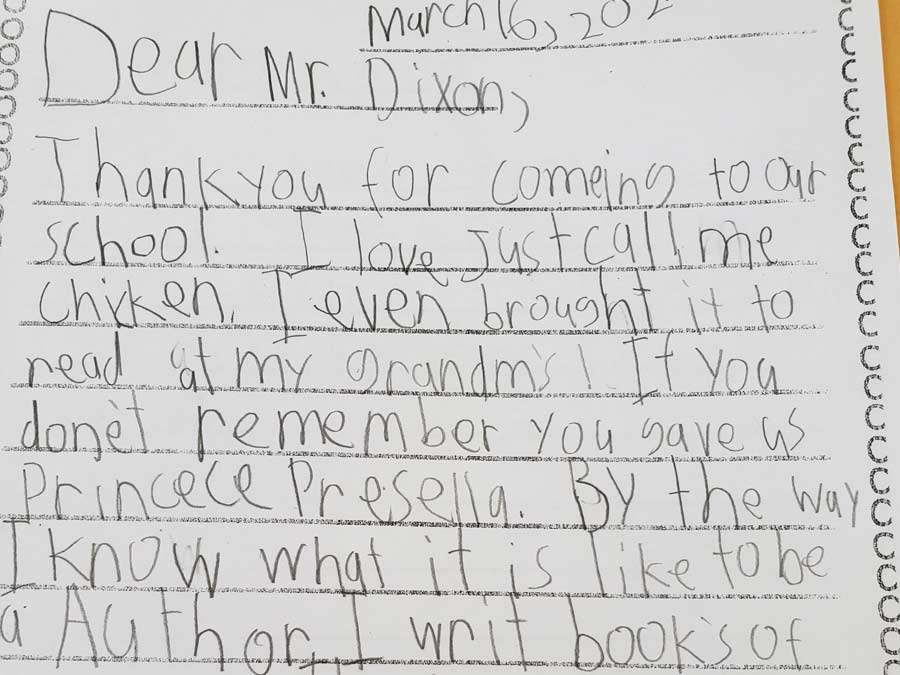 March 16, 202
Dear Mr. Dixon,
Thank you for comeing to our
school. I love Just call me
Chicken. I even brought it to
read at my Grandm's! If you
done't remember you gave us
Princece Presella. By the way
I know what it is like to be
a Author, I writ book's of